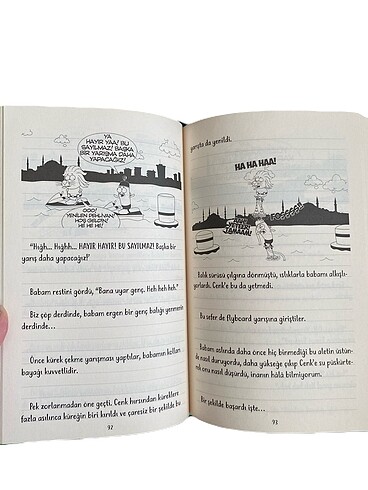 YA
HAYIR YAA! BU
SAYILMAZ! BAŞKA
BİR YARIŞMA DAHA
YAPACAĞIZ!
OOO!
YENİLEN PEHLİVAN!
HOŞ GELDİN!
HE HE HE!
"Hıgh... Hıghh... HAYIR HAYIR! BU SAYILMAZ! Başka bir
yarış daha yapacağız!"
Babam restini gördü, "Bana uyar genç. Heh heh heh."
Biz çöp derdinde, babam ergen bir genç balığı yenmenin
derdinde...
Önce kürek çekme yarışması yaptılar, babamın kolları
bayağı kuvvetlidir.
Pek zorlanmadan öne geçti. Cenk hırsından küreklere
fazla asılınca küreğin biri kırıldı ve çaresiz bir şekilde bu
92
yarışta da yenildi.
HA HA HAA!
Balık sürüsü çılgına dönmüştü, ıslıklarla babamı alkışlı-
yorlardı. Cenk'e bu da yetmedi.
Bu sefer de flyboard yarışına giriştiler.
Babam aslında daha önce hiç binmediği bu aletin üstün-
de nasıl duruyordu, daha yükseğe çıkıp Cenk'e su püskürte-
rek onu nasıl düşürdü, inanın hâlâ bilmiyorum.
Bir şekilde başardı işte...
93